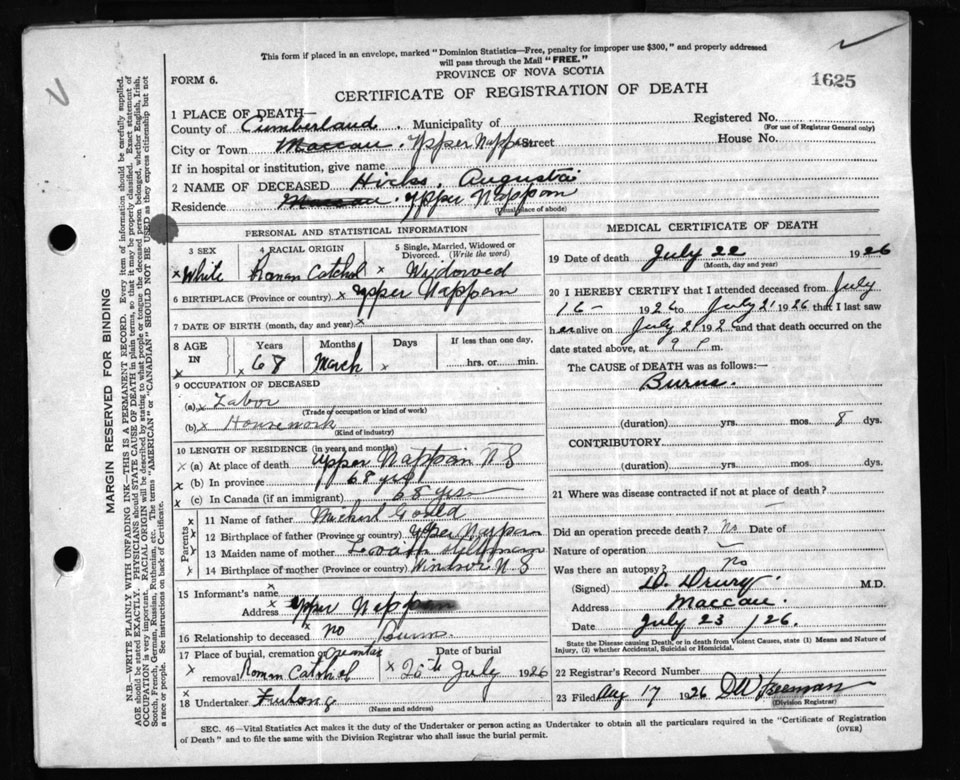 This form if placed in an envelope, marked "Dominion Statistics—Free, penalty for improper use $300," and properly addressed
will pass through the Mail "FREE."
FORM 6.
PROVINCE OF NOVA SCOTIA
1625
CERTIFICATE OF REGISTRATION OF DEATH
1 PLACE OF DEATH—
County of Cumberland. Municipality of
Registered No.
(For use of Registrar General only)
City or Town Maccan. Upper Nappan Street
House No.
If in hospital or institution, give name
2 NAME OF DECEASED Hicks, Augusta
Residence Maccan. Upper Nappan
(Usual place of abode)
PERSONAL AND STATISTICAL INFORMATION
3 SEX
4 RACIAL ORIGIN
5 Single, Married, Widowed or Divorced. (Write the word)
x White Roman Catchol x Wydowed
6 BIRTHPLACE (Province or country) x Upper Nappan
7 DATE OF BIRTH (month, day and year) x
8 AGE IN
Years
Months
Days
If less than one day.
x 68 March x hrs. or min.
9 OCCUPATION OF DECEASED
(a) x Labor
(Trade of occupation or kind of work)
(b) x Housework
(Kind of industry)
10 LENGTH OF RESIDENCE (in years and months)
x (a) At place of death Upper Nappan N S
x (b) In province 68 yrs
x (c) In Canada (if an immigrant) 68 yrs
Parents
11 Name of father Michael Gould
12 Birthplace of father (Province or country) Upper Nappan
13 Maiden name of mother
14 Birthplace of mother (Province or country) Windsor N S
15 Informant's name
Address Upper Nappan
16 Relationship to deceased no
17 Place of burial, cremation or removal
Date of burial
x Roman Catchol x 25th July 1926
18 Undertaker Furlong
(Name and address)
MEDICAL CERTIFICATE OF DEATH
19 Date of death July 22 1926
(Month, day and year)
20 I HEREBY CERTIFY that I attended deceased from July
16- 1926 to July 21 1926 that I last saw
her alive on July 21 1926 and that death occurred on the
date stated above, at 9 P m.
The CAUSE of DEATH was as follows:—
Burns.
(duration) yrs. mos. 8 dys.
CONTRIBUTORY.
(duration) yrs. mos. dys.
21 Where was disease contracted if not at place of death?
Did an operation precede death? No Date of
Nature of operation
Was there an autopsy? No
(Signed) D. Drury M.D.
Address Maccan.
Date July 23 /26.
State the Disease causing Death, or in death from Violent Causes, state (1) Means and Nature of
Injury, (2) whether Accidental, Suicidal or Homicidal.
22 Registrar's Record Number
23 Filed Aug 17 1926 D W Freeman
(Division Registrar)
SEC. 46—Vital Statistics Act makes it the duty of the Undertaker or person acting as Undertaker to obtain all the particulars required in the "Certificate of Registration
of Death" and to file the same with the Division Registrar who shall issue the burial permit.
(OVER)
MARGIN RESERVED FOR BINDING
N.B.—WRITE PLAINLY WITH UNFADING INK—THIS IS A PERMANENT RECORD. Every item of information should be carefully supplied.
AGE should be stated EXACTLY. PHYSICIANS should STATE CAUSE OF DEATH in plain terms, so that it may be properly classified. Exact statement of
OCCUPATION is very important. RACIAL ORIGIN will be described by stating to what people or tongue the deceased person belonged, whether English, Irish,
Scotch, French, German, Russian, Ruthenian, etc. The terms "AMERICAN" or "CANADIAN" SHOULD NOT BE USED as they express citizenship but not
a race or people. See instructions on back of Certificate.